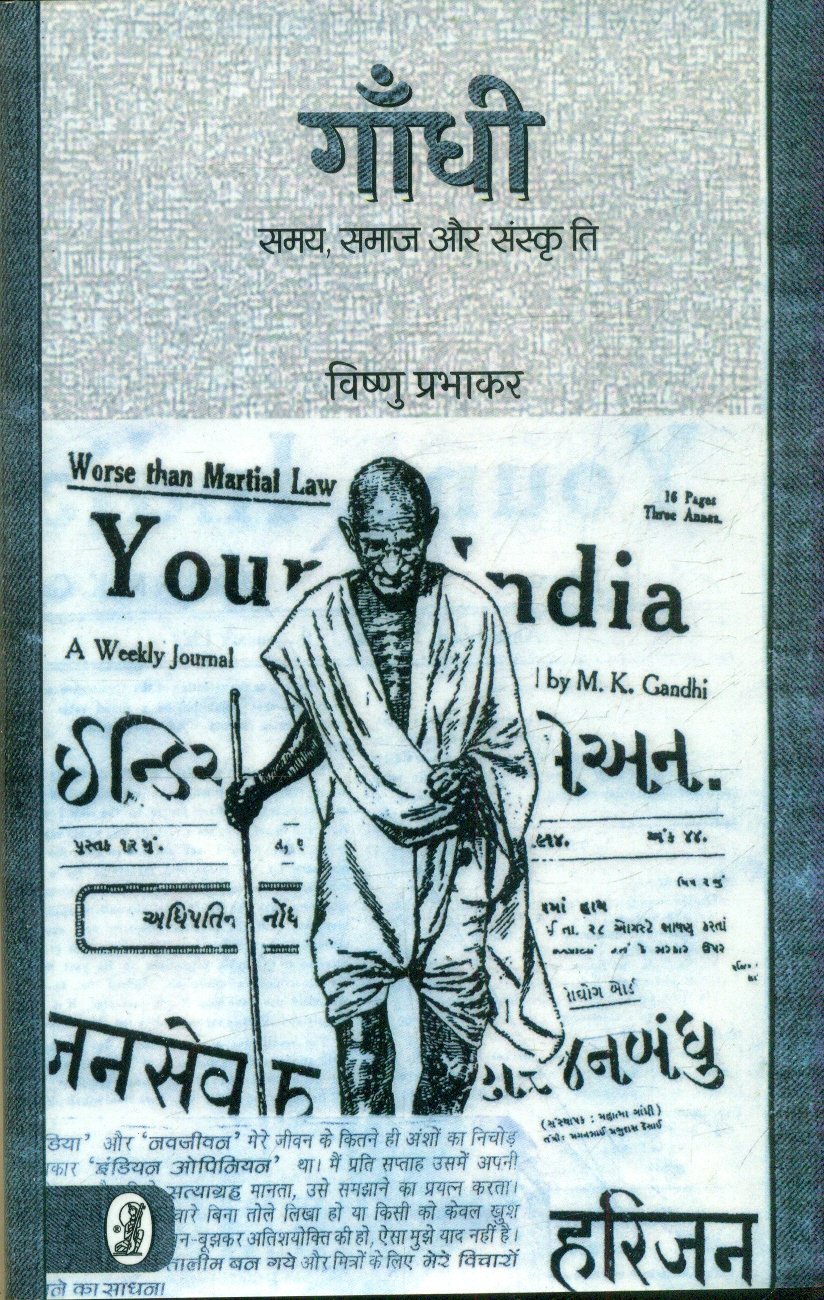 गाँधी
समय, समाज और संस्कृति
विष्णु प्रभाकर
Worse than Martial Law
16 Pages
Three Annas.
Youn India
A Weekly Journal
by M. K. Gandhi
ઈન્ડિઅ પિઅન.
પુસ્તક ૧૨ મું.
૧૯૧૪.
અંક ૪૪.
અધિપતિની નોંધ
તા. ૨૮ ઓગસ્ટે ભાષણ કરતાં
કે સરકાર ઉપર
जनसेवक
હરિજનબંધુ
(સંસ્થાપક : મહાત્મા ગાંધી)
डिया' और 'नवजीवन' मेरे जीवन के कितने ही अंशों का निचोड़
कार 'इंडियन ओपिनियन' था। मैं प्रति सप्ताह उसमें अपनी
सत्याग्रह मानता, उसे समझाने का प्रयत्न करता।
चारे बिना तोले लिखा हो या किसी को केवल खुश
न-बूझकर अतिशयोक्ति की हो, ऐसा मुझे याद नहीं है।
तालीम बन गये और मित्रों के लिए मेरे विचारों
ने का साधन।
हरिजन